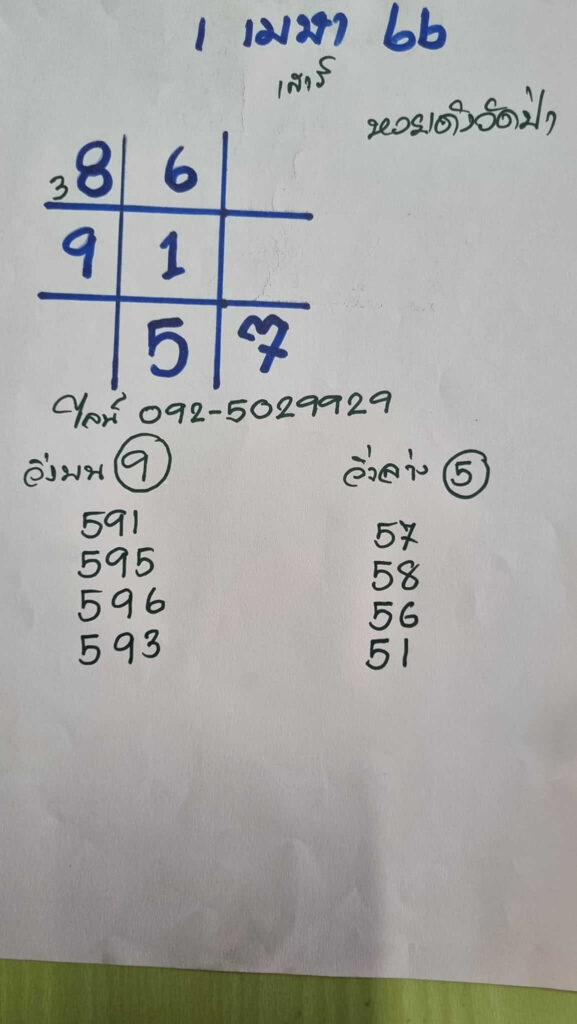 1 เมษา 66
เสาร์
หวยดังวัดป่า
3 8 6
9 1
5 7
ไลน์ 092-5029929
วิ่งบน 9
วิ่งล่าง 5
591
57
595
58
596
56
593
51